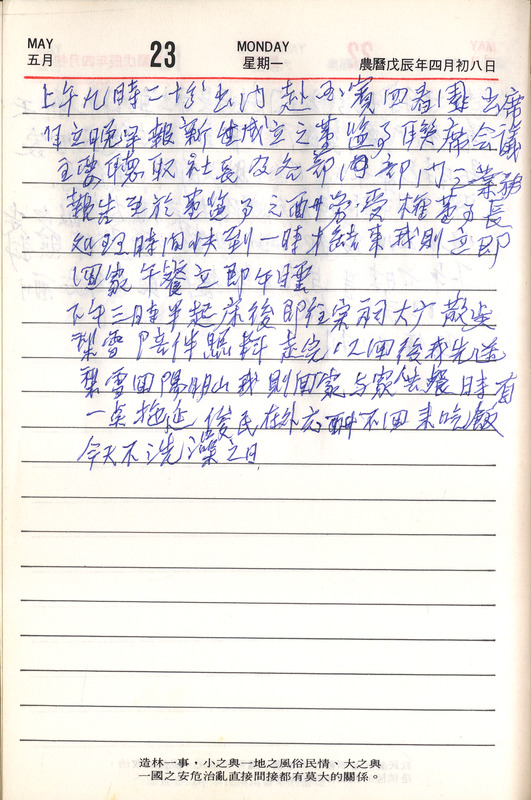 MAY 23 MONDAY
五月 星期一 農曆戊辰年四月初八日
上午九時二十分出門赴國賓四春園出席
自立晚早報新值成立之董監事聯席會議
主要聽取社長及各部門部門之業務
報告至於董監事之酬勞受權董事長
處理時間快到一時才結束我則立即
回家午餐立即午睡
下午三時半起床後即往 大廣散步
梨雪陪伴 走完12回後我先送
梨雪回陽明山我則回家与家供餐時有
一桌拖延俊民在外応酬不回來吃飯
今天不洗澡之日
造林一事，小之與一地之風俗民情、大之與
一國之安危治亂直接間接都有莫大的關係。